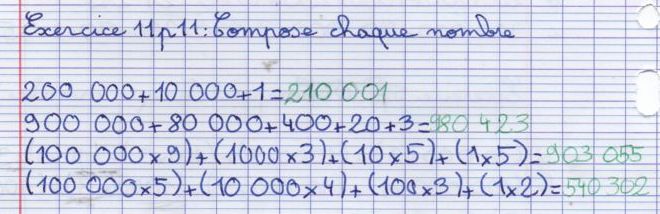 Exercice 11 p 11 : Compose chaque nombre
200 000 + 10 000 + 1 = 210 001
900 000 + 80 000 + 400 + 20 + 3 = 980 423
(100 000 x 9) + (1000 x 3) + (10 x 5) + (1 x 5) = 903 055
(100 000 x 5) + (10 000 x 4) + (100 x 3) + (1 x 2) = 540 302